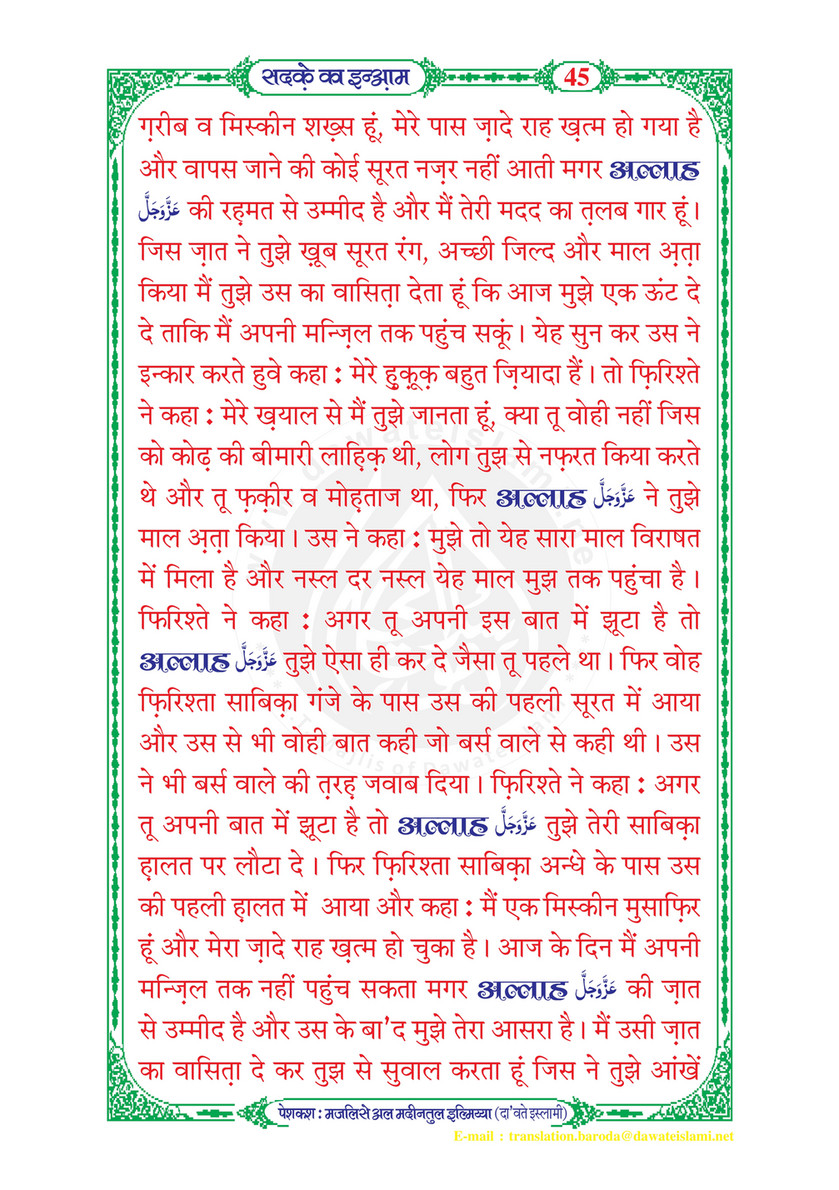 सदक़े का इन्आ़म
45
ग़रीब व मिस्कीन शख़्स हूं, मेरे पास ज़ादे राह ख़त्म हो गया है
और वापस जाने की कोई सूरत नज़र नहीं आती मगर अल्लाह
عَزَّوَجَلَّ की रह़मत से उम्मीद है और मैं तेरी मदद का त़लब गार हूं।
जिस ज़ात ने तुझे ख़ूब सूरत रंग, अच्छी जिल्द और माल अ़त़ा
किया मैं तुझे उस का वासित़ा देता हूं कि आज मुझे एक ऊंट दे
दे ताकि मैं अपनी मन्ज़िल तक पहुंच सकूं। येह सुन कर उस ने
इन्कार करते हुवे कहा : मेरे ह़ुक़ूक़ बहुत ज़ियादा हैं। तो फ़िरिश्ते
ने कहा : मेरे ख़याल से मैं तुझे जानता हूं, क्या तू वोही नहीं जिस
को कोढ़ की बीमारी लाह़िक़ थी, लोग तुझ से नफ़रत किया करते
थे और तू फ़क़ीर व मोह़ताज था, फिर अल्लाह عَزَّوَجَلَّ ने तुझे
माल अ़त़ा किया। उस ने कहा : मुझे तो येह सारा माल विराषत
में मिला है और नस्ल दर नस्ल येह माल मुझ तक पहुंचा है।
फिरिश्ते ने कहा : अगर तू अपनी इस बात में झूटा है तो
अल्लाह عَزَّوَجَلَّ तुझे ऐसा ही कर दे जैसा तू पहले था। फिर वोह
फ़िरिश्ता साबिक़ा गंजे के पास उस की पहली सूरत में आया
और उस से भी वोही बात कही जो बर्स वाले से कही थी। उस
ने भी बर्स वाले की त़रह़ जवाब दिया। फ़िरिश्ते ने कहा : अगर
तू अपनी बात में झूटा है तो अल्लाह عَزَّوَجَلَّ तुझे तेरी साबिक़ा
ह़ालत पर लौटा दे। फिर फ़िरिश्ता साबिक़ा अन्धे के पास उस
की पहली ह़ालत में आया और कहा : मैं एक मिस्कीन मुसाफ़िर
हूं और मेरा ज़ादे राह ख़त्म हो चुका है। आज के दिन मैं अपनी
मन्ज़िल तक नहीं पहुंच सकता मगर अल्लाह عَزَّوَجَلَّ की ज़ात
से उम्मीद है और उस के बा'द मुझे तेरा आसरा है। मैं उसी ज़ात
का वासित़ा दे कर तुझ से सुवाल करता हूं जिस ने तुझे आंखें
पेशकश : मजलिसे अल मदीनतुल इल्मिय्या (दा'वते इस्लामी)
E-mail : translation.baroda@dawateislami.net